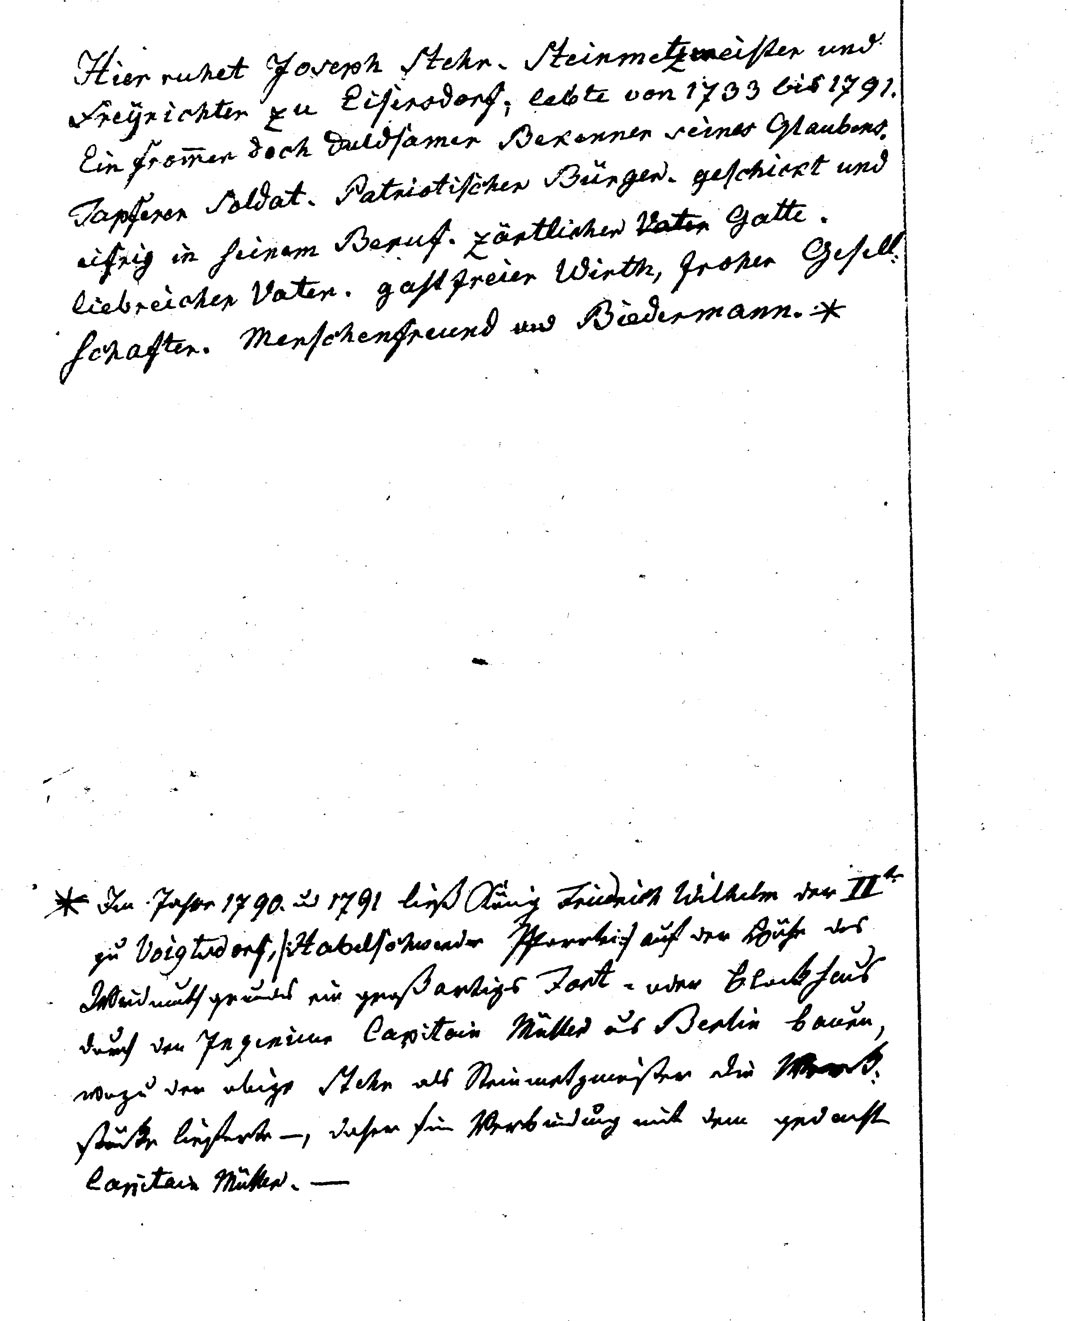 Hier ruhet Joseph Stehr. Steinmetzmeister und
Freÿrichter zu Eisersdorf; lebte von 1733 bis 1791.
Ein from̅er doch duldsamer Bekenner seines Glaubens.
Tapferer Soldat. Patriotischer Bürger. geschickt und
eifrig in seinem Beruf. zärtlicher Vater Gatte.
liebreicher Vater. gastfreier Wirth, froher Gesell:
schafter. Menschenfreund und Biedermann. *
* Im Jahre 1790. u 1791 ließ König Friedrich Wilhelm der II te
zu Voigtsdorf, /:Habelschwerder Pfarrtei:/ auf der Höhe des
grundes ein großartiges Fort - oder Blockhaus
durch den Ingenieur Capitain Müller aus Berlin bauen,
wozu der obige Stehr als Steinmetzmeister die Werk:
stücke lieferte —, daher sein Verbindung mit dem gedacht
Capitain Müller. —